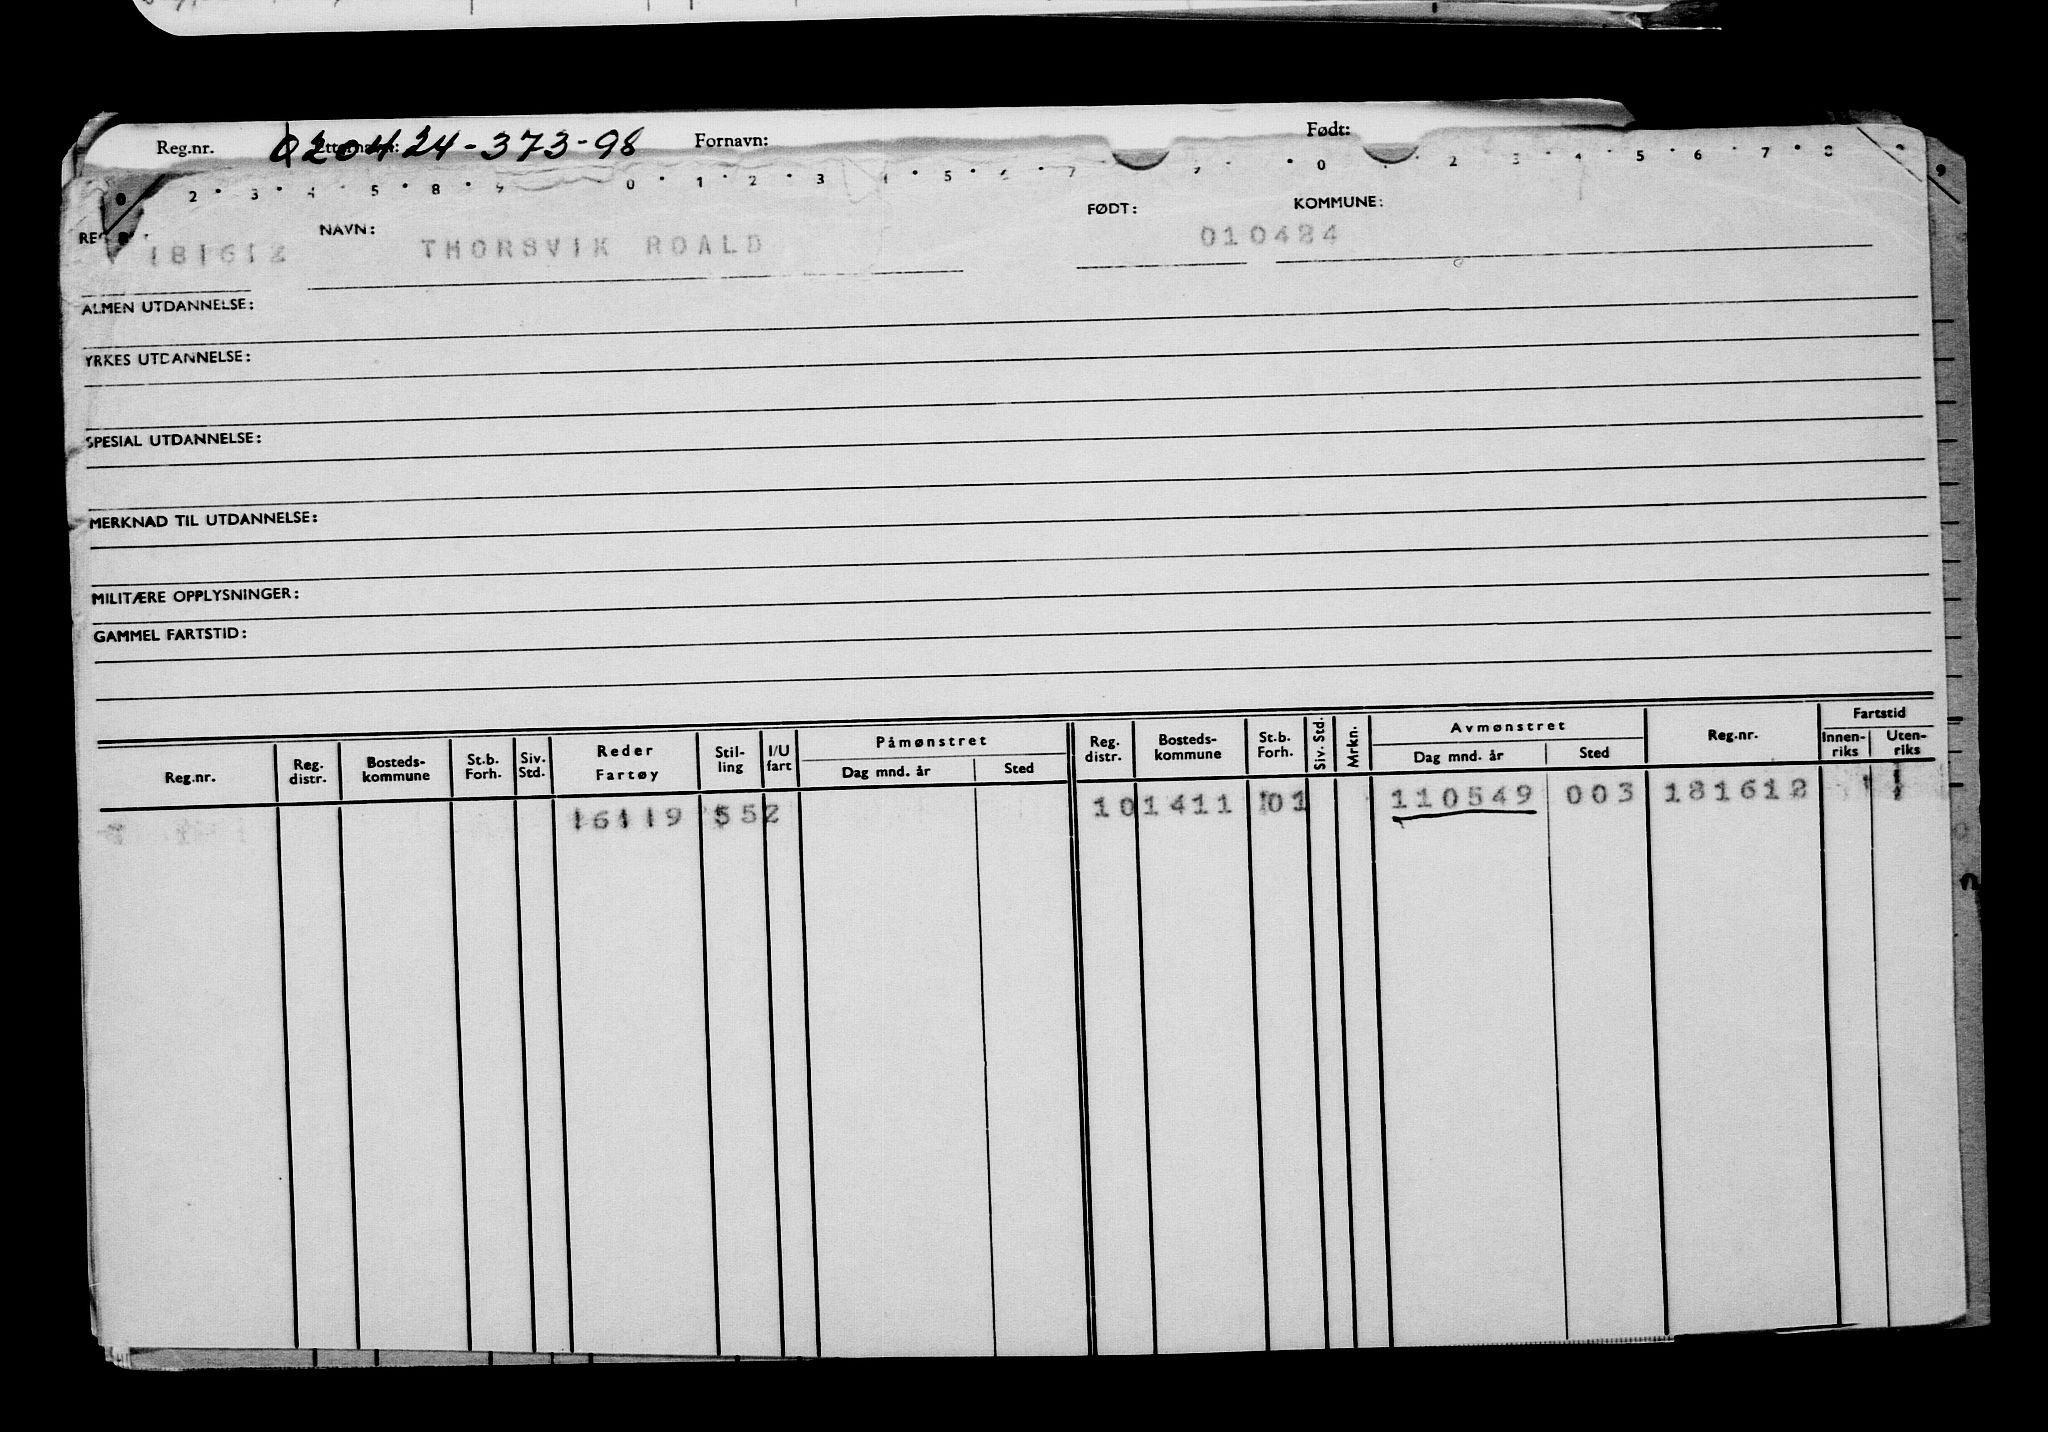 Reg.nr. 020424-373-98 Fornavn: Født:
2 · 3 · 4 · 5 · 8 · 9 0 · 1 · 2 · 3 4 · 5 · 6 · 7 · 0 · 2 3 · 4 · 5 · 6 · 7 · 8 9
NAVN: FØDT: KOMMUNE:
181612 THORSVIK ROALD 010424
ALMEN UTDANNELSE:
YRKES UTDANNELSE:
SPESIAL UTDANNELSE:
MERKNAD TIL UTDANNELSE:
MILITÆRE OPPLYSNINGER:
GAMMEL FARTSTID:
Reg.nr. Reg. distr. Bosteds-kommune St.b. Forh. Siv. Std. Reder Fartøy Stil-ling I/U fart Påmønstret Dag mnd. år Sted Reg. distr. Bosteds-kommune St.b. Forh. Siv. Std. Mrkn. Avmønstret Dag mnd. år Sted Reg.nr. Fartstid Innen-riks Uten-riks
16119 552 10 1411 01 110549 003 181612